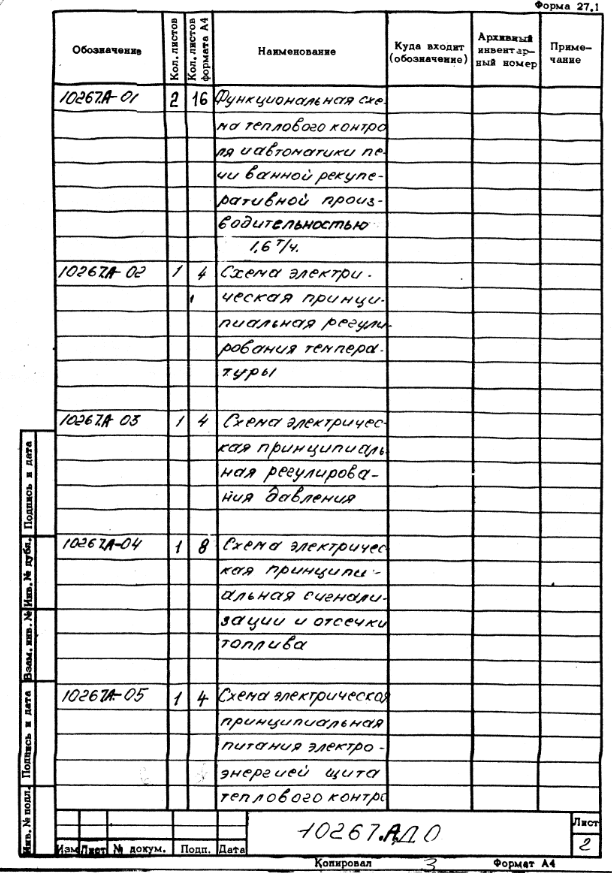 Форма 27.1
Обозначение
Кол. листов
Кол. листов формата А4
Наименование
Куда входит (обозначение)
Архивный инвентар- ный номер
Приме- чание
10267.А-01 2 16 Функциональная схе-
ма теплового контро
ля и автоматики пе-
чи ванной рекупе-
ративной произ-
водительностью
1,6 т/ч.
10267.А-02 1 4 Схема электри-
ческая принци-
пиальная регули-
рования темпера-
туры
10267.А-03 1 4 Схема электричес-
кая принципиаль
ная регулирова-
ния давления
10267.А-04 1 8 Схема электричес
кая принципи-
альная сигнали-
зации и отсечки
топлива
10267.А-05 1 4 Схема электрическая
принципиальная
питания электро-
энергией щита
теплового контро
Инв. № подл.
Подпись и дата
Взам. инв. №
Инв. № дубл.
Подпись и дата
Изм Лист № докум. Подп. Дата
10267.АД.О
Лист
2
Копировал 3 Формат А4